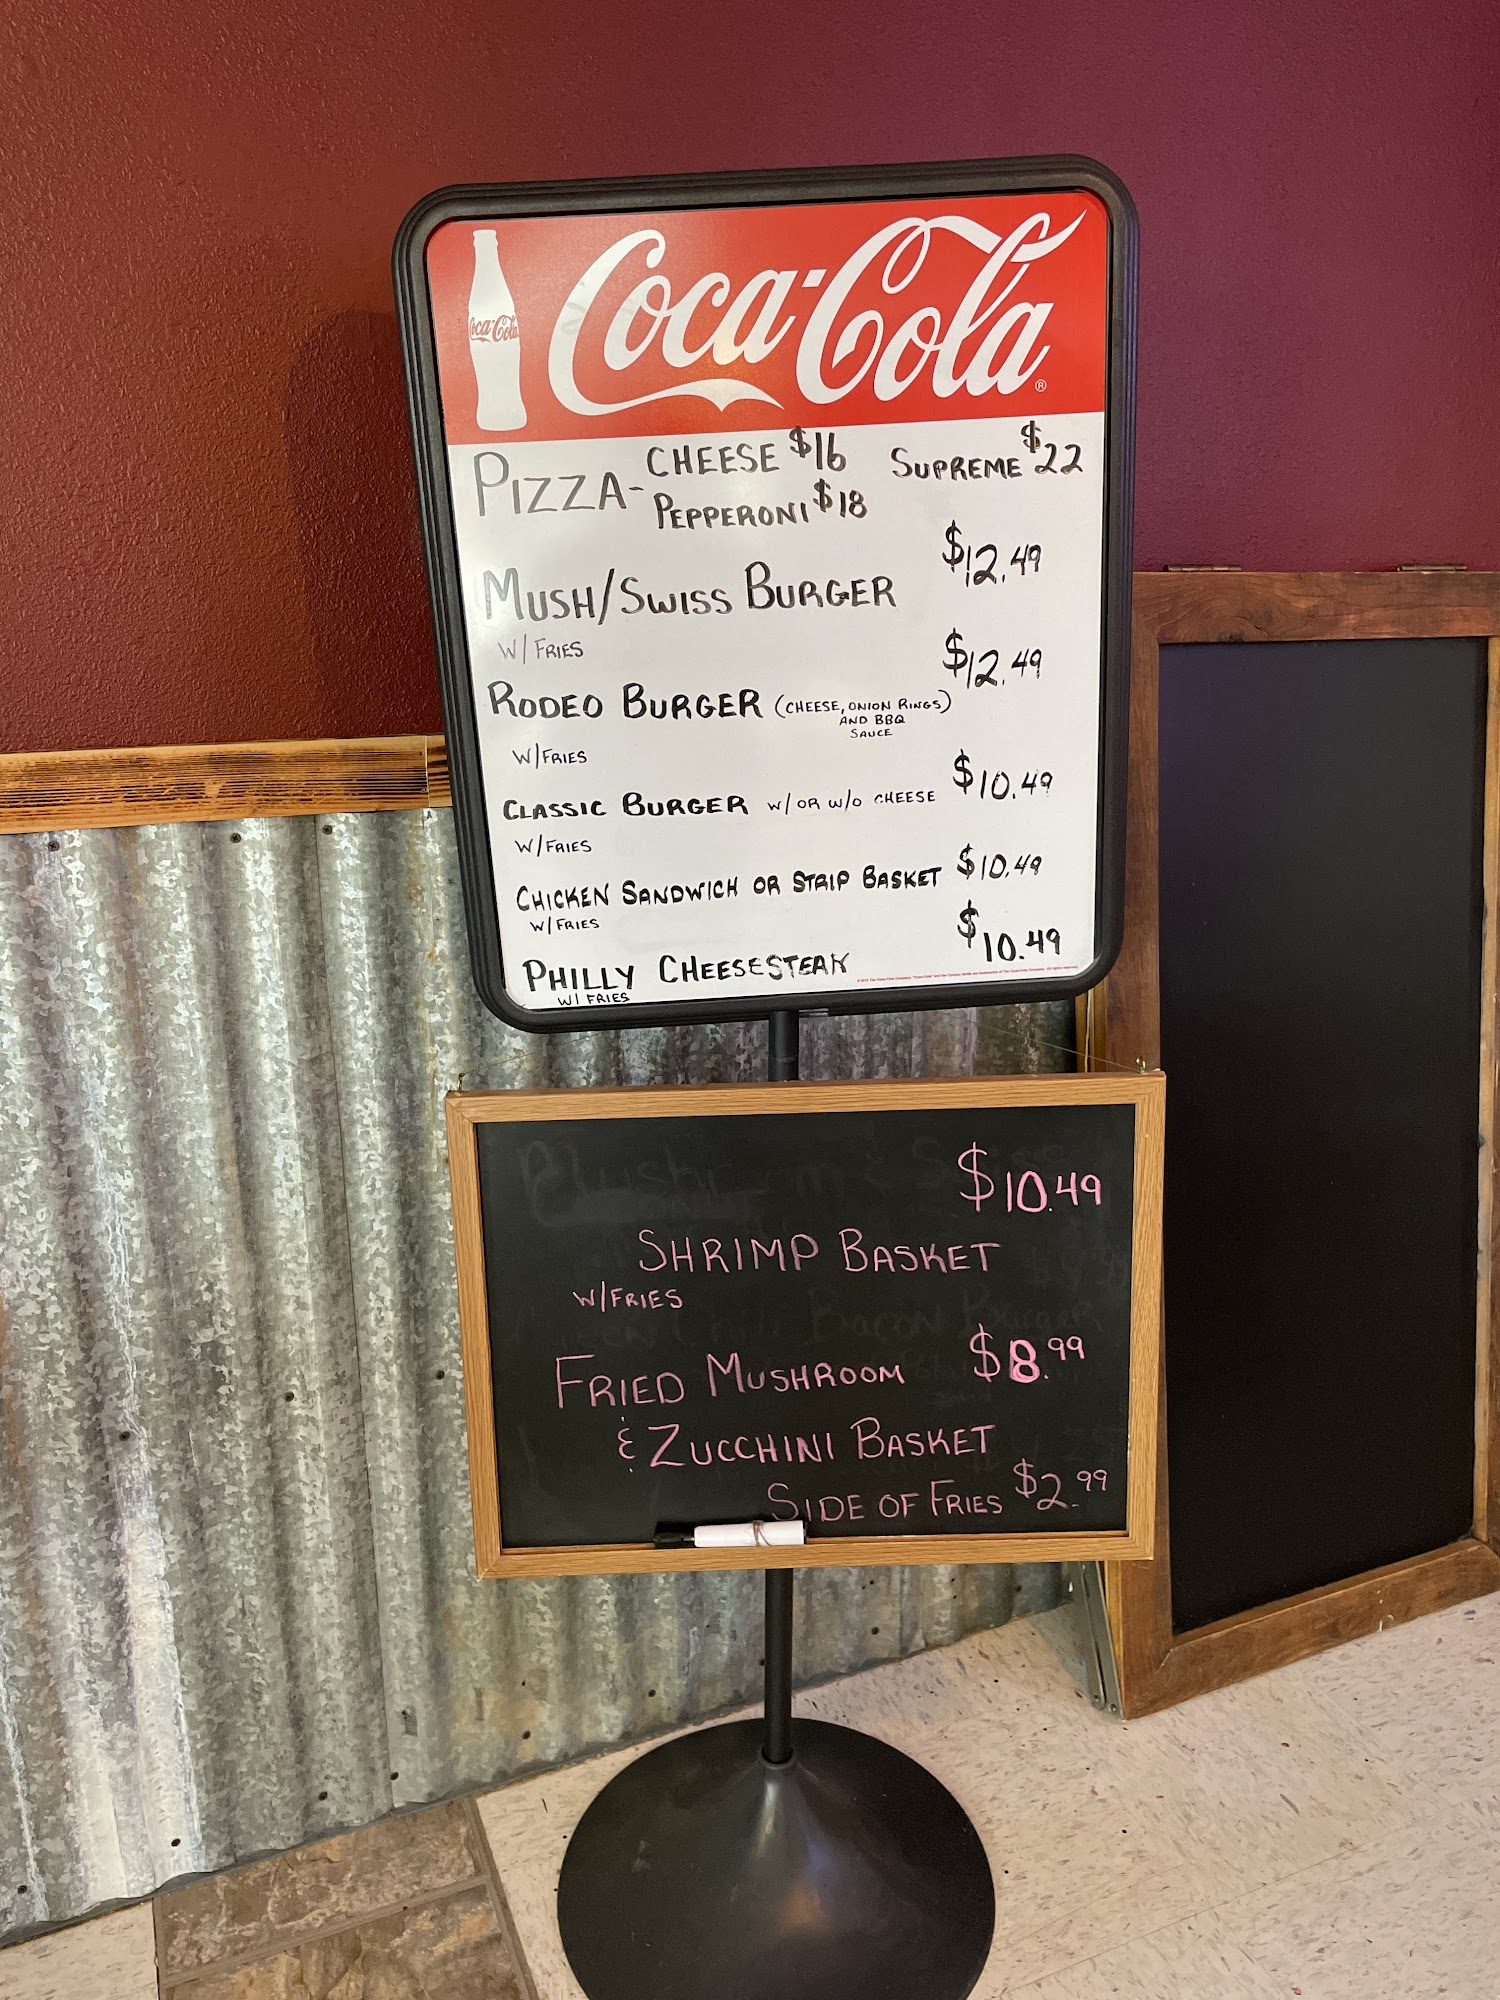 Coca-Cola
Coca-Cola ®
PIZZA- CHEESE $16 SUPREME $22
PEPPERONI $18
MUSH/SWISS BURGER $12.49
W/ FRIES
RODEO BURGER (CHEESE, ONION RINGS) $12.49
AND BBQ
SAUCE
W/FRIES
CLASSIC BURGER W/ OR W/O CHEESE $10.49
W/FRIES
CHICKEN SANDWICH OR STRIP BASKET $10.49
W/FRIES
PHILLY CHEESESTEAK $10.49
W/ FRIES
$10.49
SHRIMP BASKET
W/FRIES
FRIED MUSHROOM $8.99
& ZUCCHINI BASKET
SIDE OF FRIES $2.99